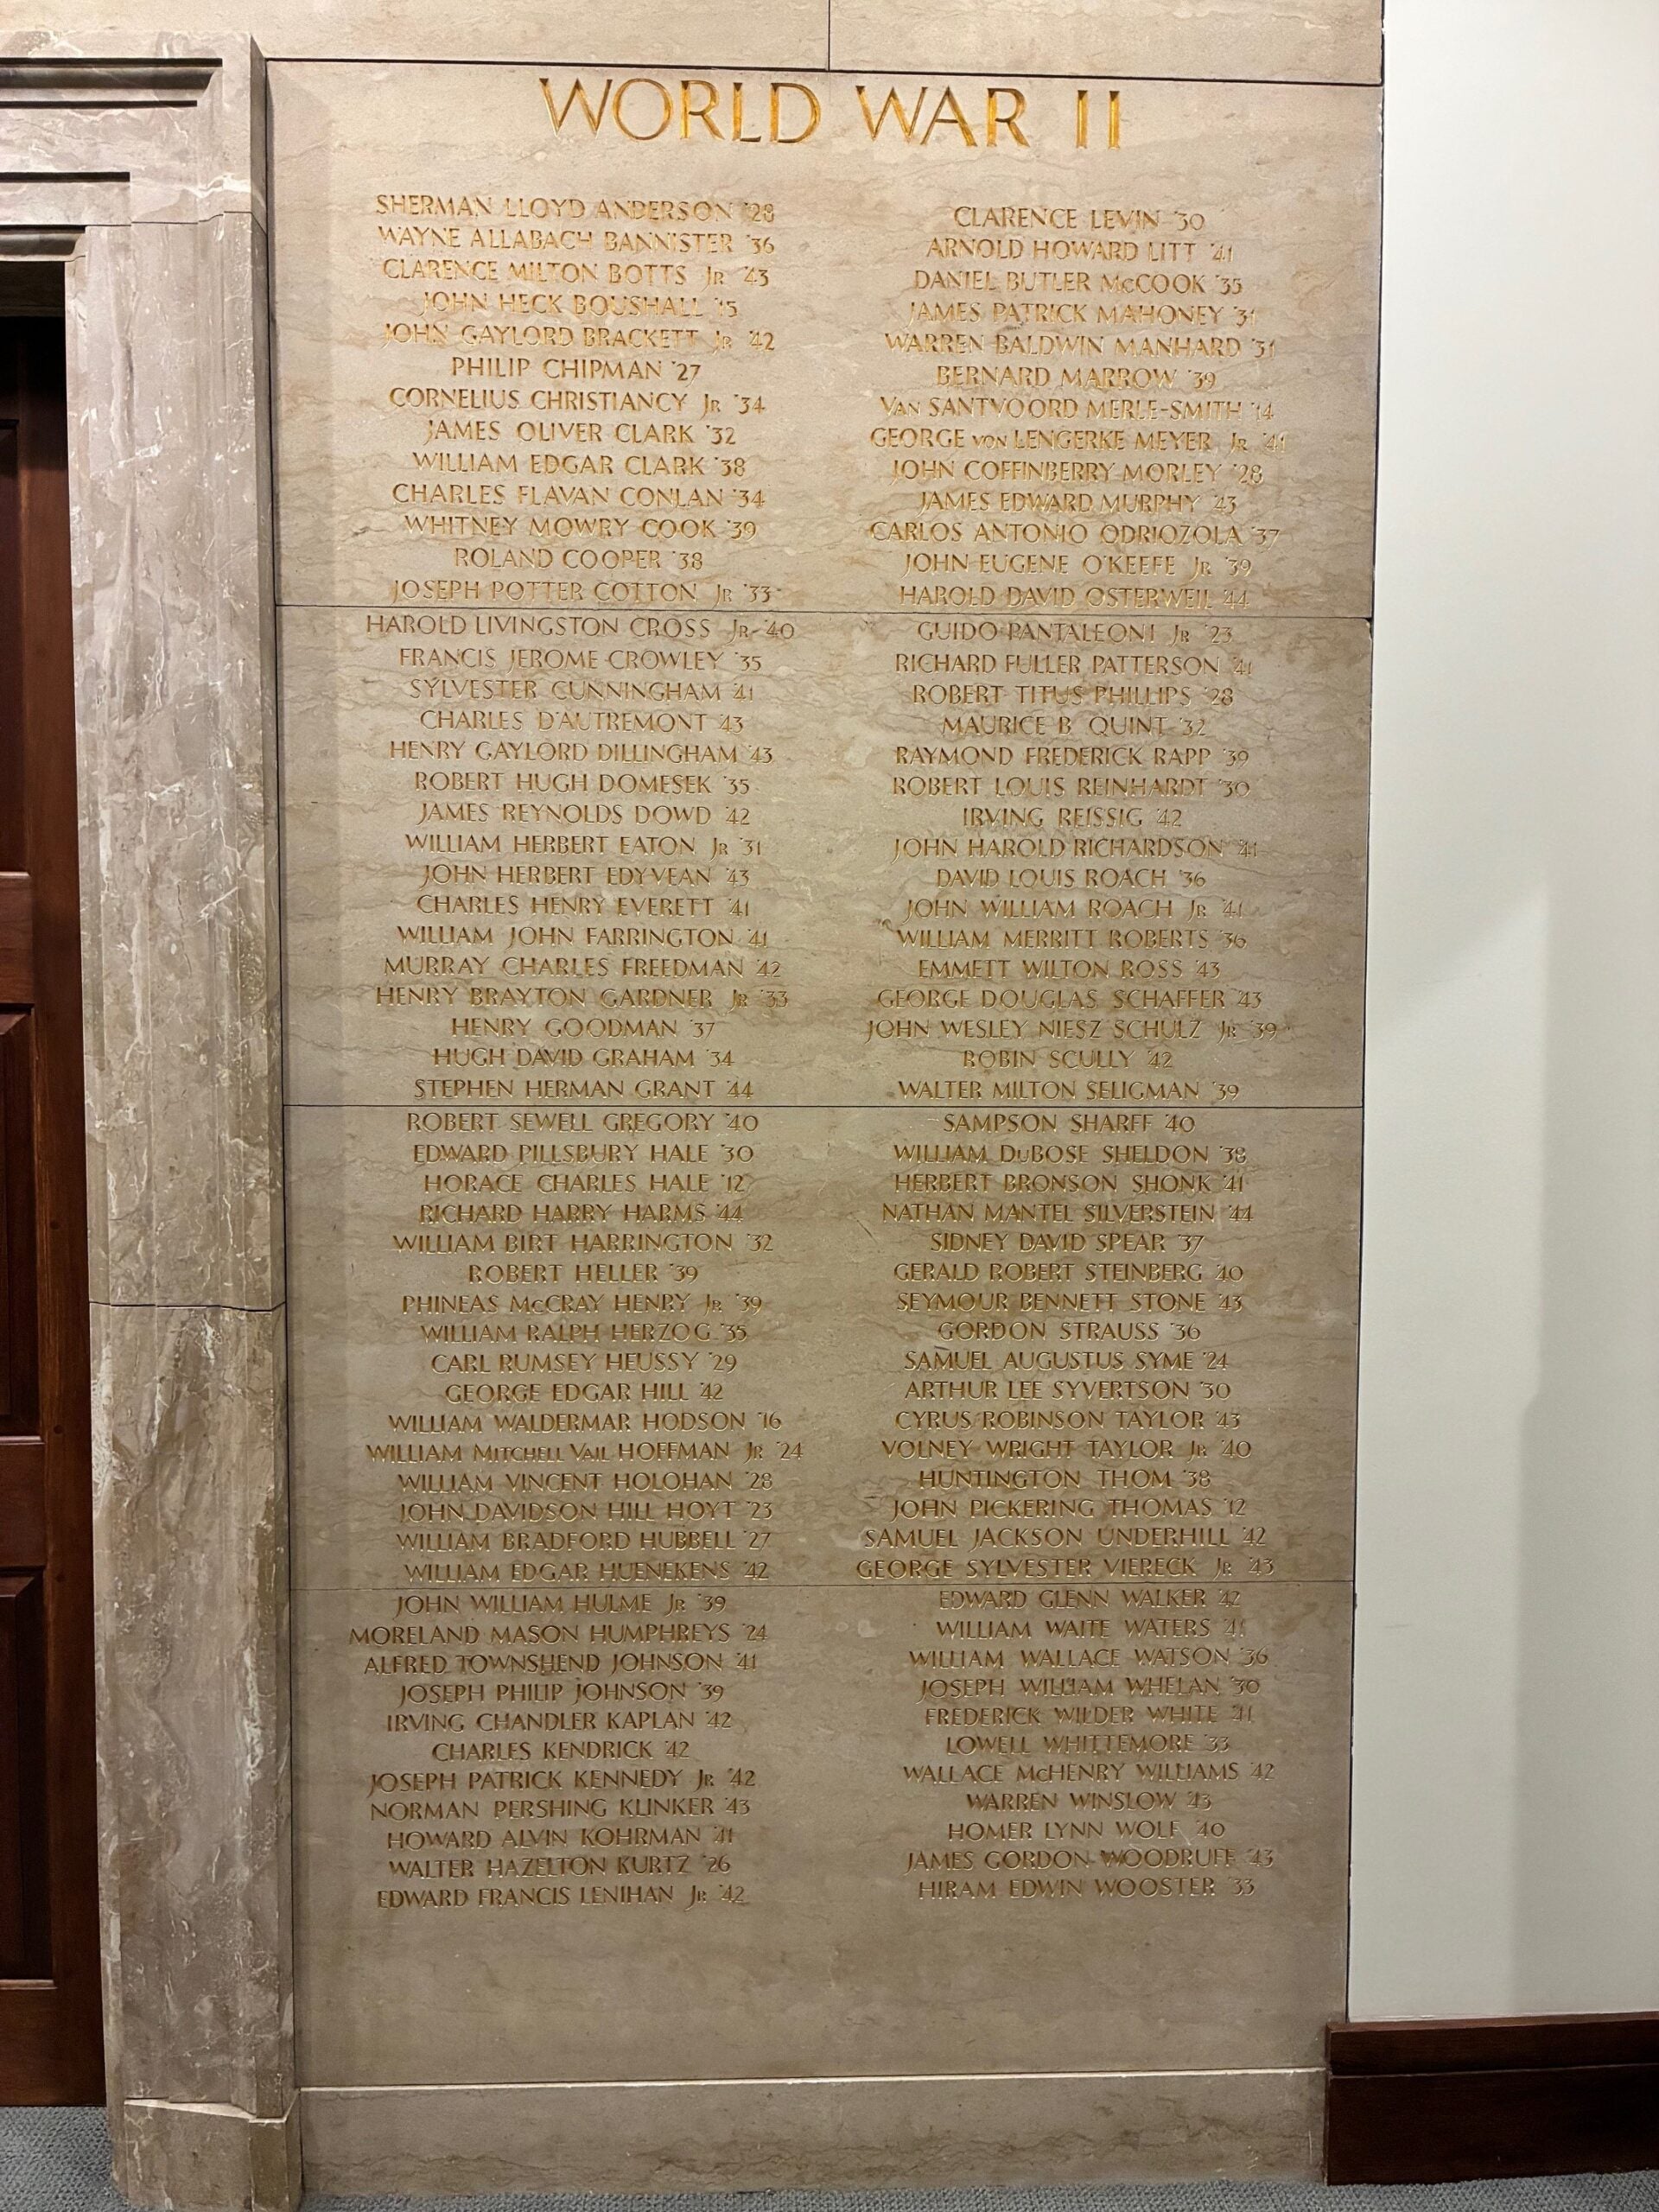 WORLD WAR II
SHERMAN LLOYD ANDERSON '28
WAYNE ALLABACH BANNISTER '36
CLARENCE MILTON BOTTS JR '43
JOHN HECK BOUSHALL '15
JOHN GAYLORD BRACKETT JR '42
PHILIP CHIPMAN '27
CORNELIUS CHRISTIANCY JR '34
JAMES OLIVER CLARK '32
WILLIAM EDGAR CLARK '38
CHARLES FLAVAN CONLAN '34
WHITNEY MOWRY COOK '39
ROLAND COOPER '38
JOSEPH POTTER COTTON JR '33
HAROLD LIVINGSTON CROSS JR '40
FRANCIS JEROME CROWLEY '35
SYLVESTER CUNNINGHAM '41
CHARLES D'AUTREMONT '43
HENRY GAYLORD DILLINGHAM '43
ROBERT HUGH DOMESEK '35
JAMES REYNOLDS DOWD '42
WILLIAM HERBERT EATON JR '31
JOHN HERBERT EDYVEAN '43
CHARLES HENRY EVERETT '41
WILLIAM JOHN FARRINGTON '41
MURRAY CHARLES FREEDMAN '42
HENRY BRAYTON GARDNER JR '33
HENRY GOODMAN '37
HUGH DAVID GRAHAM '34
STEPHEN HERMAN GRANT '44
ROBERT SEWELL GREGORY '40
EDWARD PILLSBURY HALE '30
HORACE CHARLES HALE '12
RICHARD HARRY HARMS '44
WILLIAM BIRT HARRINGTON '32
ROBERT HELLER '39
PHINEAS McCRAY HENRY JR '39
WILLIAM RALPH HERZOG '35
CARL RUMSEY HEUSSY '29
GEORGE EDGAR HILL '42
WILLIAM WALDERMAR HODSON '16
WILLIAM MITCHELL VAIL HOFFMAN JR '24
WILLIAM VINCENT HOLOHAN '28
JOHN DAVIDSON HILL HOYT '23
WILLIAM BRADFORD HUBBELL '27
WILLIAM EDGAR HUENEKENS '42
JOHN WILLIAM HULME JR '39
MORELAND MASON HUMPHREYS '24
ALFRED TOWNSHEND JOHNSON '41
JOSEPH PHILIP JOHNSON '39
IRVING CHANDLER KAPLAN '42
CHARLES KENDRICK '42
JOSEPH PATRICK KENNEDY JR '42
NORMAN PERSHING KLINKER '43
HOWARD ALVIN KOHRMAN '41
WALTER HAZELTON KURTZ '26
EDWARD FRANCIS LENIHAN JR '42
CLARENCE LEVIN '30
ARNOLD HOWARD LITT '41
DANIEL BUTLER McCOOK '35
JAMES PATRICK MAHONEY '31
WARREN BALDWIN MANHARD '31
BERNARD MARROW '39
VAN SANTVOORD MERLE-SMITH '14
GEORGE VON LENGERKE MEYER JR '41
JOHN COFFINBERRY MORLEY '28
JAMES EDWARD MURPHY '43
CARLOS ANTONIO ODRIOZOLA '37
JOHN EUGENE O'KEEFE JR '39
HAROLD DAVID OSTERWEIL '44
GUIDO PANTALEONI JR '23
RICHARD FULLER PATTERSON '41
ROBERT TITUS PHILLIPS '28
MAURICE B QUINT '32
RAYMOND FREDERICK RAPP '39
ROBERT LOUIS REINHARDT '30
IRVING REISSIG '42
JOHN HAROLD RICHARDSON '41
DAVID LOUIS ROACH '36
JOHN WILLIAM ROACH JR '41
WILLIAM MERRITT ROBERTS '36
EMMETT WILTON ROSS '43
GEORGE DOUGLAS SCHAFFER '43
JOHN WESLEY NIESZ SCHULZ JR '39
ROBIN SCULLY '42
WALTER MILTON SELIGMAN '39
SAMPSON SHARFF '40
WILLIAM DuBOSE SHELDON '38
HERBERT BRONSON SHONK '41
NATHAN MANTEL SILVERSTEIN '44
SIDNEY DAVID SPEAR '37
GERALD ROBERT STEINBERG '40
SEYMOUR BENNETT STONE '43
GORDON STRAUSS '36
SAMUEL AUGUSTUS SYME '24
ARTHUR LEE SYVERTSON '30
CYRUS ROBINSON TAYLOR '43
VOLNEY WRIGHT TAYLOR JR '40
HUNTINGTON THOM '38
JOHN PICKERING THOMAS '12
SAMUEL JACKSON UNDERHILL '42
GEORGE SYLVESTER VIERECK JR '43
EDWARD GLENN WALKER '42
WILLIAM WAITE WATERS '41
WILLIAM WALLACE WATSON '36
JOSEPH WILLIAM WHELAN '30
FREDERICK WILDER WHITE '41
LOWELL WHITTEMORE '33
WALLACE McHENRY WILLIAMS '42
WARREN WINSLOW '43
HOMER LYNN WOLF '40
JAMES GORDON WOODRUFF '43
HIRAM EDWIN WOOSTER '33